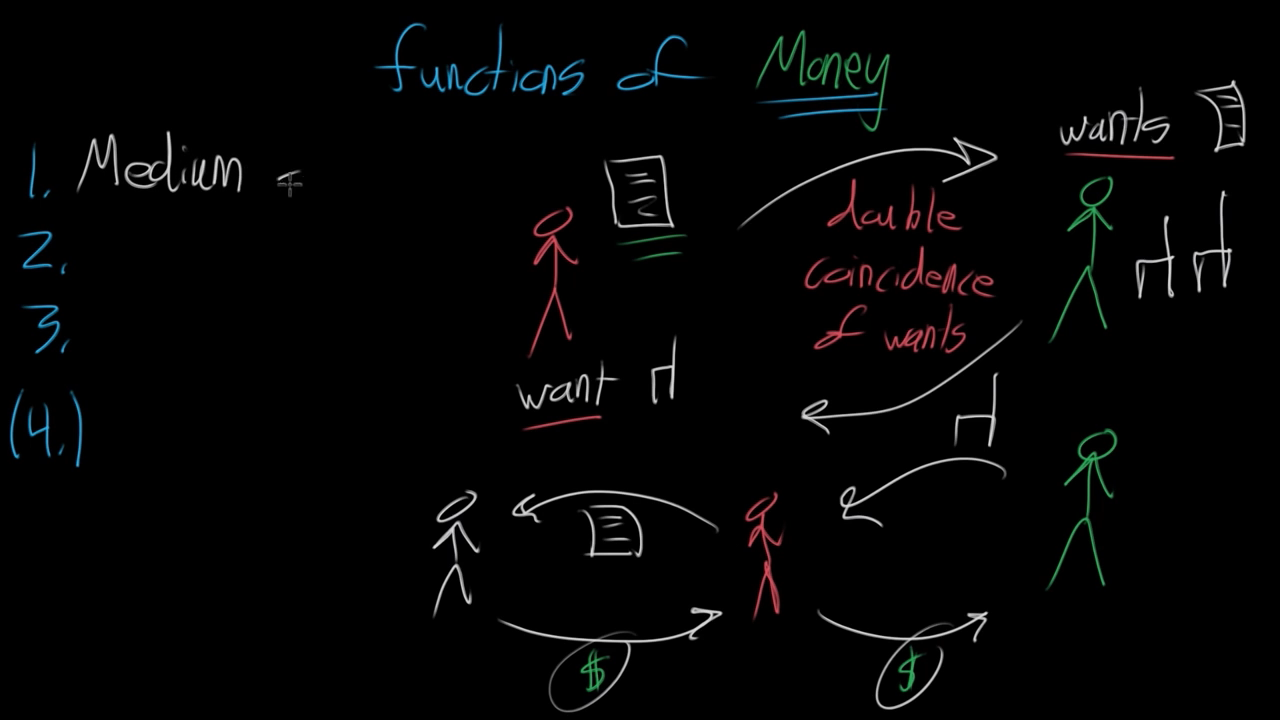 functions of Money
1. Medium
2.
3.
(4.)
wants
double
coincidence
of wants
want
$
$